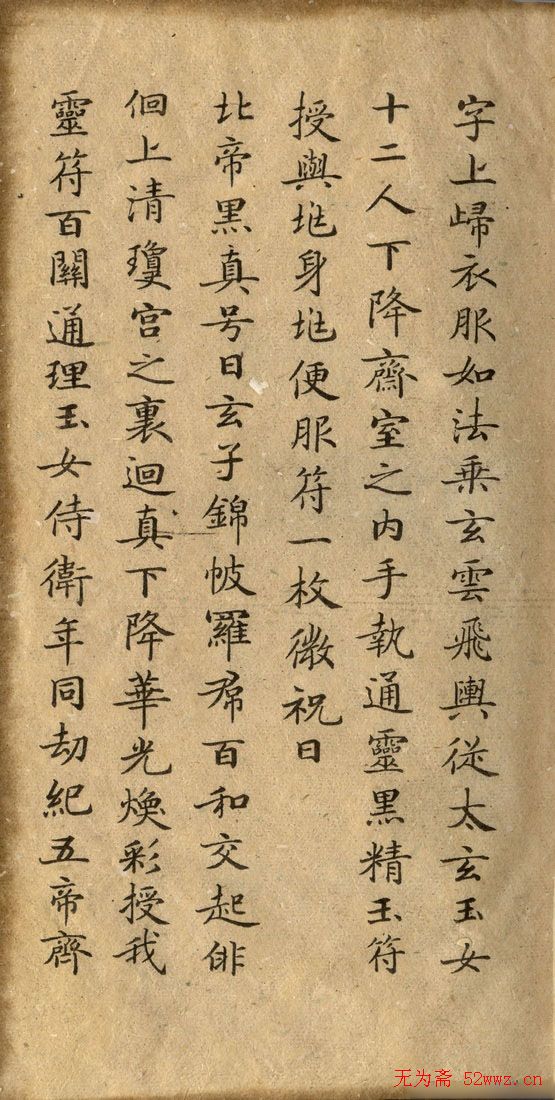 字上歸衣服如法乗玄雲飛輿從太玄玉女
十二人下降齋室之内手執通靈黑精玉符
授與地身地便服符一枚微祝曰
北帝黑真号曰玄子錦帔羅帬百和交起俳
佪上清瓊宫之裏迴真下降華光煥彩授我
靈符百關通理玉女侍衛年同劫紀五帝齊
无为斋 52wwz.cn